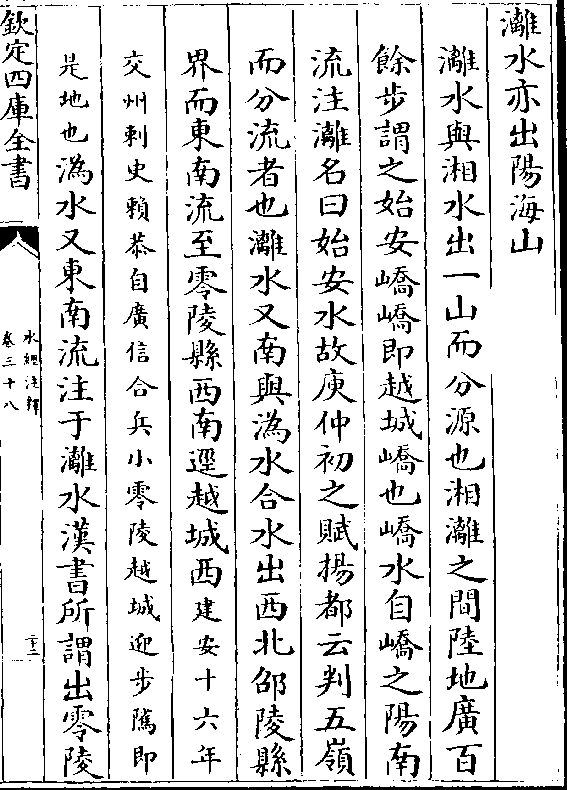 灕水亦出陽海山
灕水與湘水出一山而分源也湘灕之間陸地廣百
餘步謂之始安嶠嶠即越城嶠也嶠水自嶠之陽南
流注灕名曰始安水故庾仲初之賦揚都云判五嶺
而分流者也灕水又南與溈水合水出西北邵陵縣
界而東南流至零陵縣西南逕越城西建安十六年
交州刺史賴恭自廣信合兵小零陵越城迎步隲即
是地也溈水又東南流注于灕水漢書所謂出零陵
欽定四庫全書
水經注釋
卷三十八